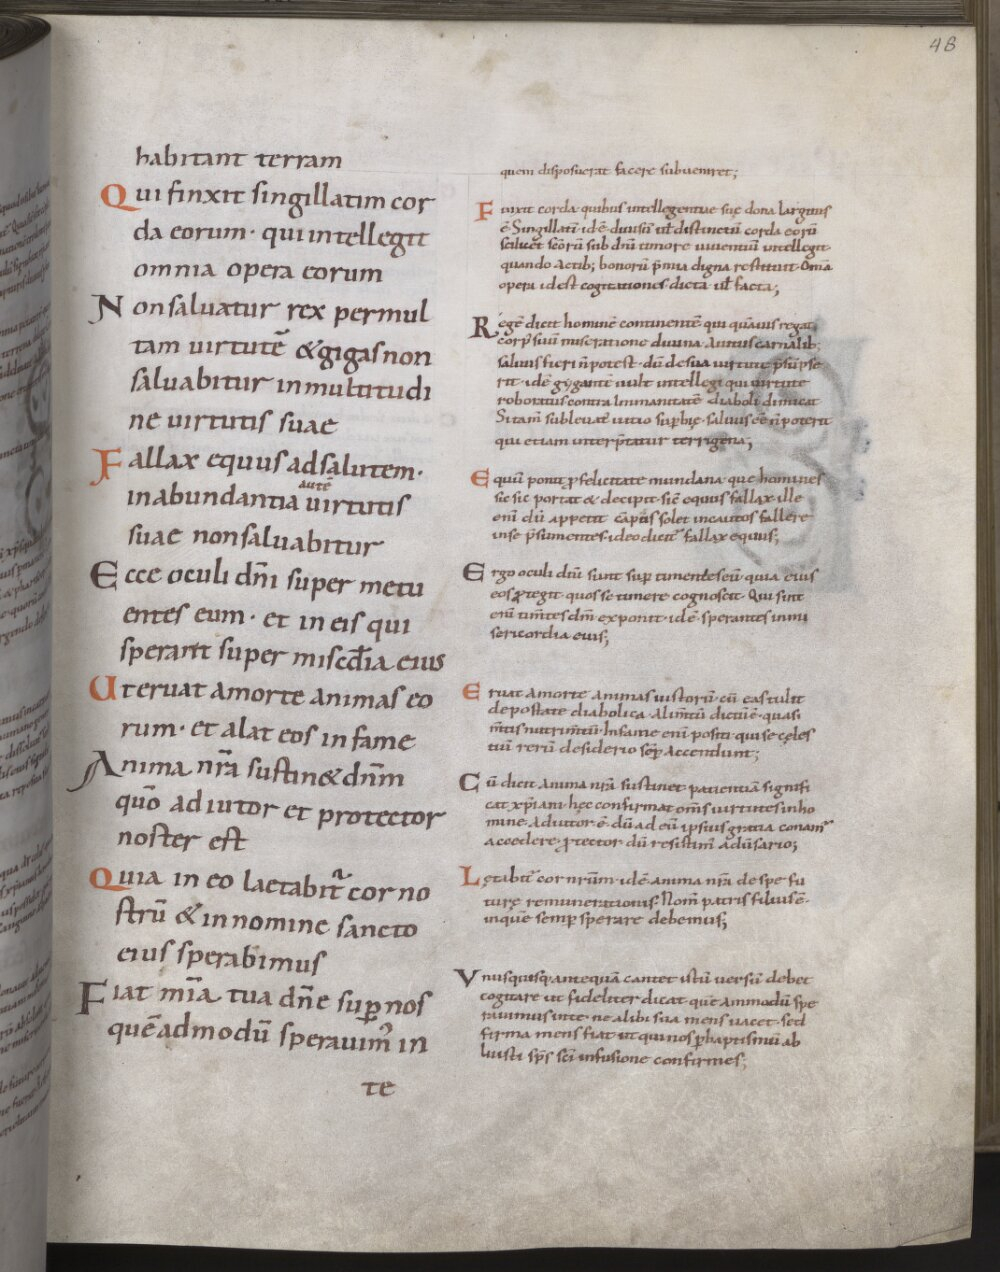 48
habitant terram
Qui finxit singillatim cor
da eorum· qui intellegit
omnia opera eorum
Non saluatur rex per mul
tam uirtutē & gigas non
saluabitur in multitudi
ne uirtutis suae
Fallax equus ad salutem·
autē
in abundantia uirtutis
suae non saluabitur
Ecce oculi dn̄i super metu
entes eum· et in eis qui
sperant super misc̄dia eius
Ut eruat a morte animas eo
rum· et alat eos in fame
Anima nr̄a sustin& dn̄m
qūo adiutor et protector
noster est
Quia in eo laetabit᷑ cor no
strū & in nomine sancto
eius sperabimus
Fiat mīa tua dn̄e sup̄ nos
quē admodū sperauim᷒ in
te
quem disposuerat facere subueniret;
Finxit corda quibus intellegentiae suę dona largitus
ē· Singillatī· id ē· diuisū uł distinctū corda eorū
scilicet sc̄orū sub dn̄i timore uiuentiū intellegit·
quando actib; bonorū p̄mia digna restituit· Om̄a
opera id est cogitationes dicta uł facta;
Regē dicit hominē continentē qui quāuis regat
corp᷒ suū miseratione diuina· a uitiis carnalib;
saluus fieri n̄ potest· dū de sua uirtute p̄sūpse
rit· id ē gygantē uult intellegi qui uirtute
robo­ratus contra inmanitatē diaboli dimicat
Si tam̄ subleuat᷑ uitio sup̄bię· saluus ēē n̄ poterit
qui etiam interp̄tatur terrigena;
Equū ponit p̱ felicitate mundana· que homines
sic portat & decipit· sic̄ equus fallax· ille
enī dū appetit· cāpus solet incautos fallere
in se p̄sumentes· ideo dicit᷑ fallax equus;
Ergo oculi dn̄i sunt sup̄ timentes eū· quia eius
eos p̱tegit· quos se timere cognoscit· Qui sint
enī tim̄tes dm̄ exponit· id ē· sperantes in mi
sericordia eius;
Eruat a morte animas iustorū· cū eas tulit
de potestate diabolica· Alim̄tū dictū ē· quasi
m̄tis nutrim̄tū· In fame enī positi qui se cęles
tiū rerū desiderio semp̄ accendunt;
Cū dicit anima nr̄a sustinet· patientiā signifi
cat xp̄iani· hęc confirmat om̄s uirtutes in ho
mine· Adiutor ē· dū ad eū ipsius gratia conam᷑
accedere· p̱tector dū resistim᷒ aduersario;
Lętabit᷑ cor nr̄um· id ē· anima nr̄a de spe fu
turę remunerationis· Nom̄ patris filius ē·
in quē semp̄ sperare debemus;
Vnusquisq; antequā cantet istū uersū debet
cogitare ut fideliter dicat· quē ammodū spe
rauimus in te· ne alibi sua mens uacet· sed
firma mens fiat ut qui nos p̱ baptismū ab
luisti· sp̄s sc̄i infusione confirmes;